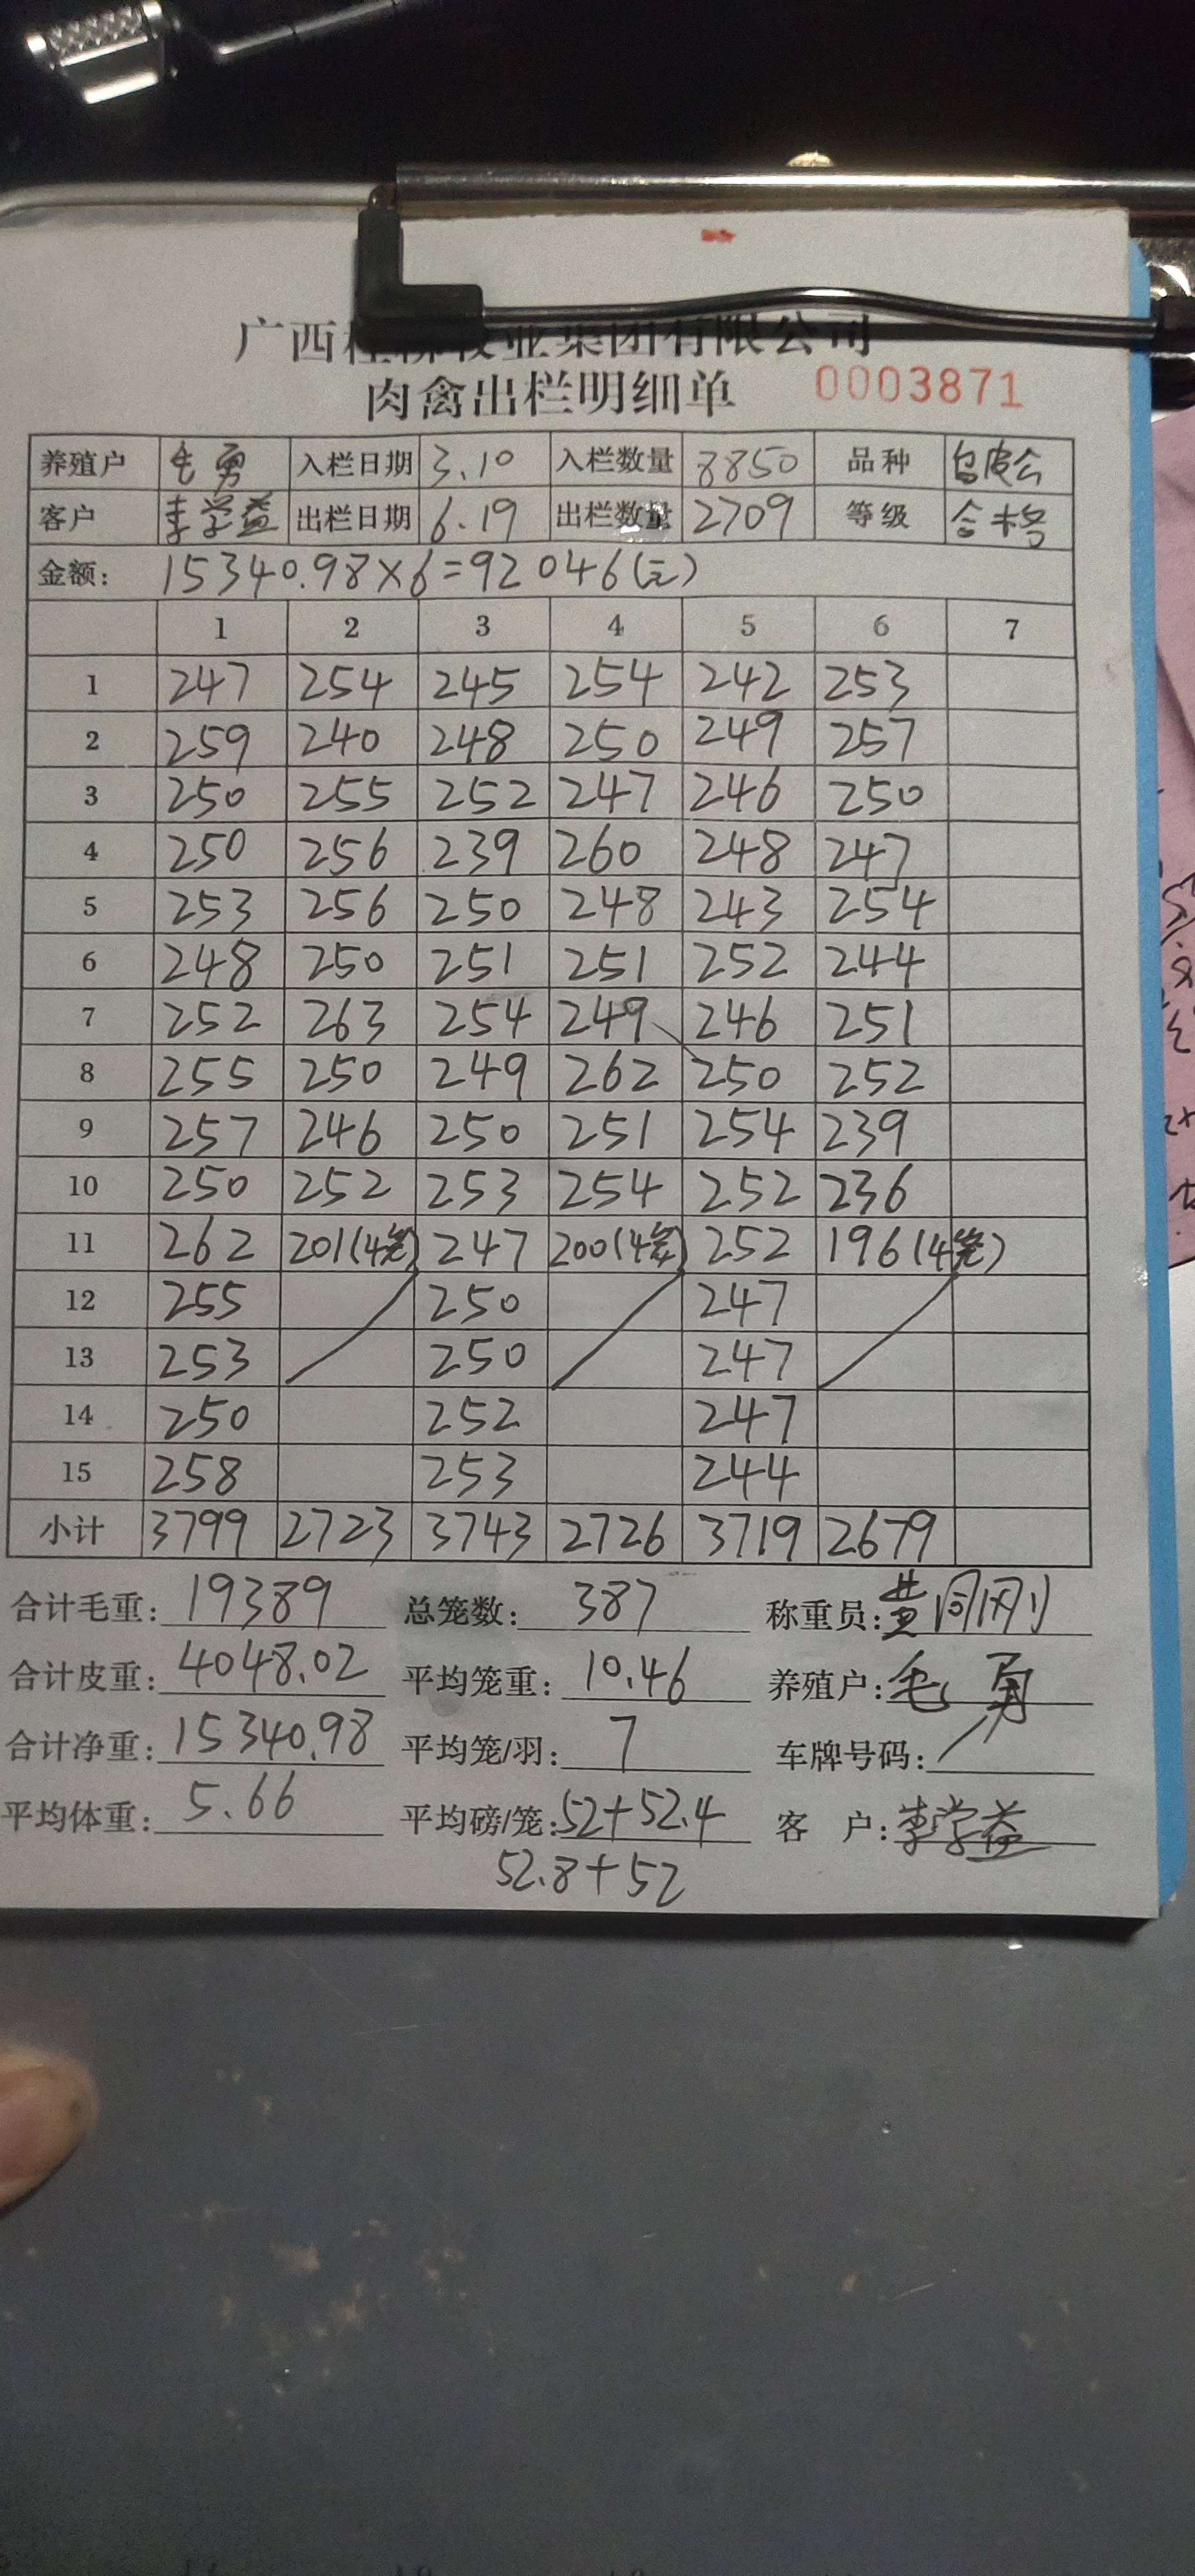 广西桂柳牧业集团有限公司
肉禽出栏明细单 0003871
养殖户 毛勇 入栏日期 3.10 入栏数量 8850 品种 乌皮公
客户 李学益 出栏日期 6.19 出栏数量 2709 等级 合格
金额: 15340.98×6=92046(元)
1 2 3 4 5 6 7
1 247 254 245 254 242 253
2 259 240 248 250 249 257
3 250 255 252 247 246 250
4 250 256 239 260 248 247
5 253 256 250 248 243 254
6 248 250 251 251 252 244
7 252 263 254 249 246 251
8 255 250 249 262 250 252
9 257 246 250 251 254 239
10 250 252 253 254 252 236
11 262 201(4笼) 247 200(4笼) 252 196(4笼)
12 255 250 247
13 253 250 247
14 250 252 247
15 258 253 244
小计 3799 2723 3743 2726 3719 2679
合计毛重: 19389 总笼数: 387 称重员: 黄同刚
合计皮重: 4048.02 平均笼重: 10.46 养殖户: 毛勇
合计净重: 15340.98 平均笼/羽: 7 车牌号码:
平均体重: 5.66 平均磅/笼: 52+52.4 客 户: 李学益
52.8+52